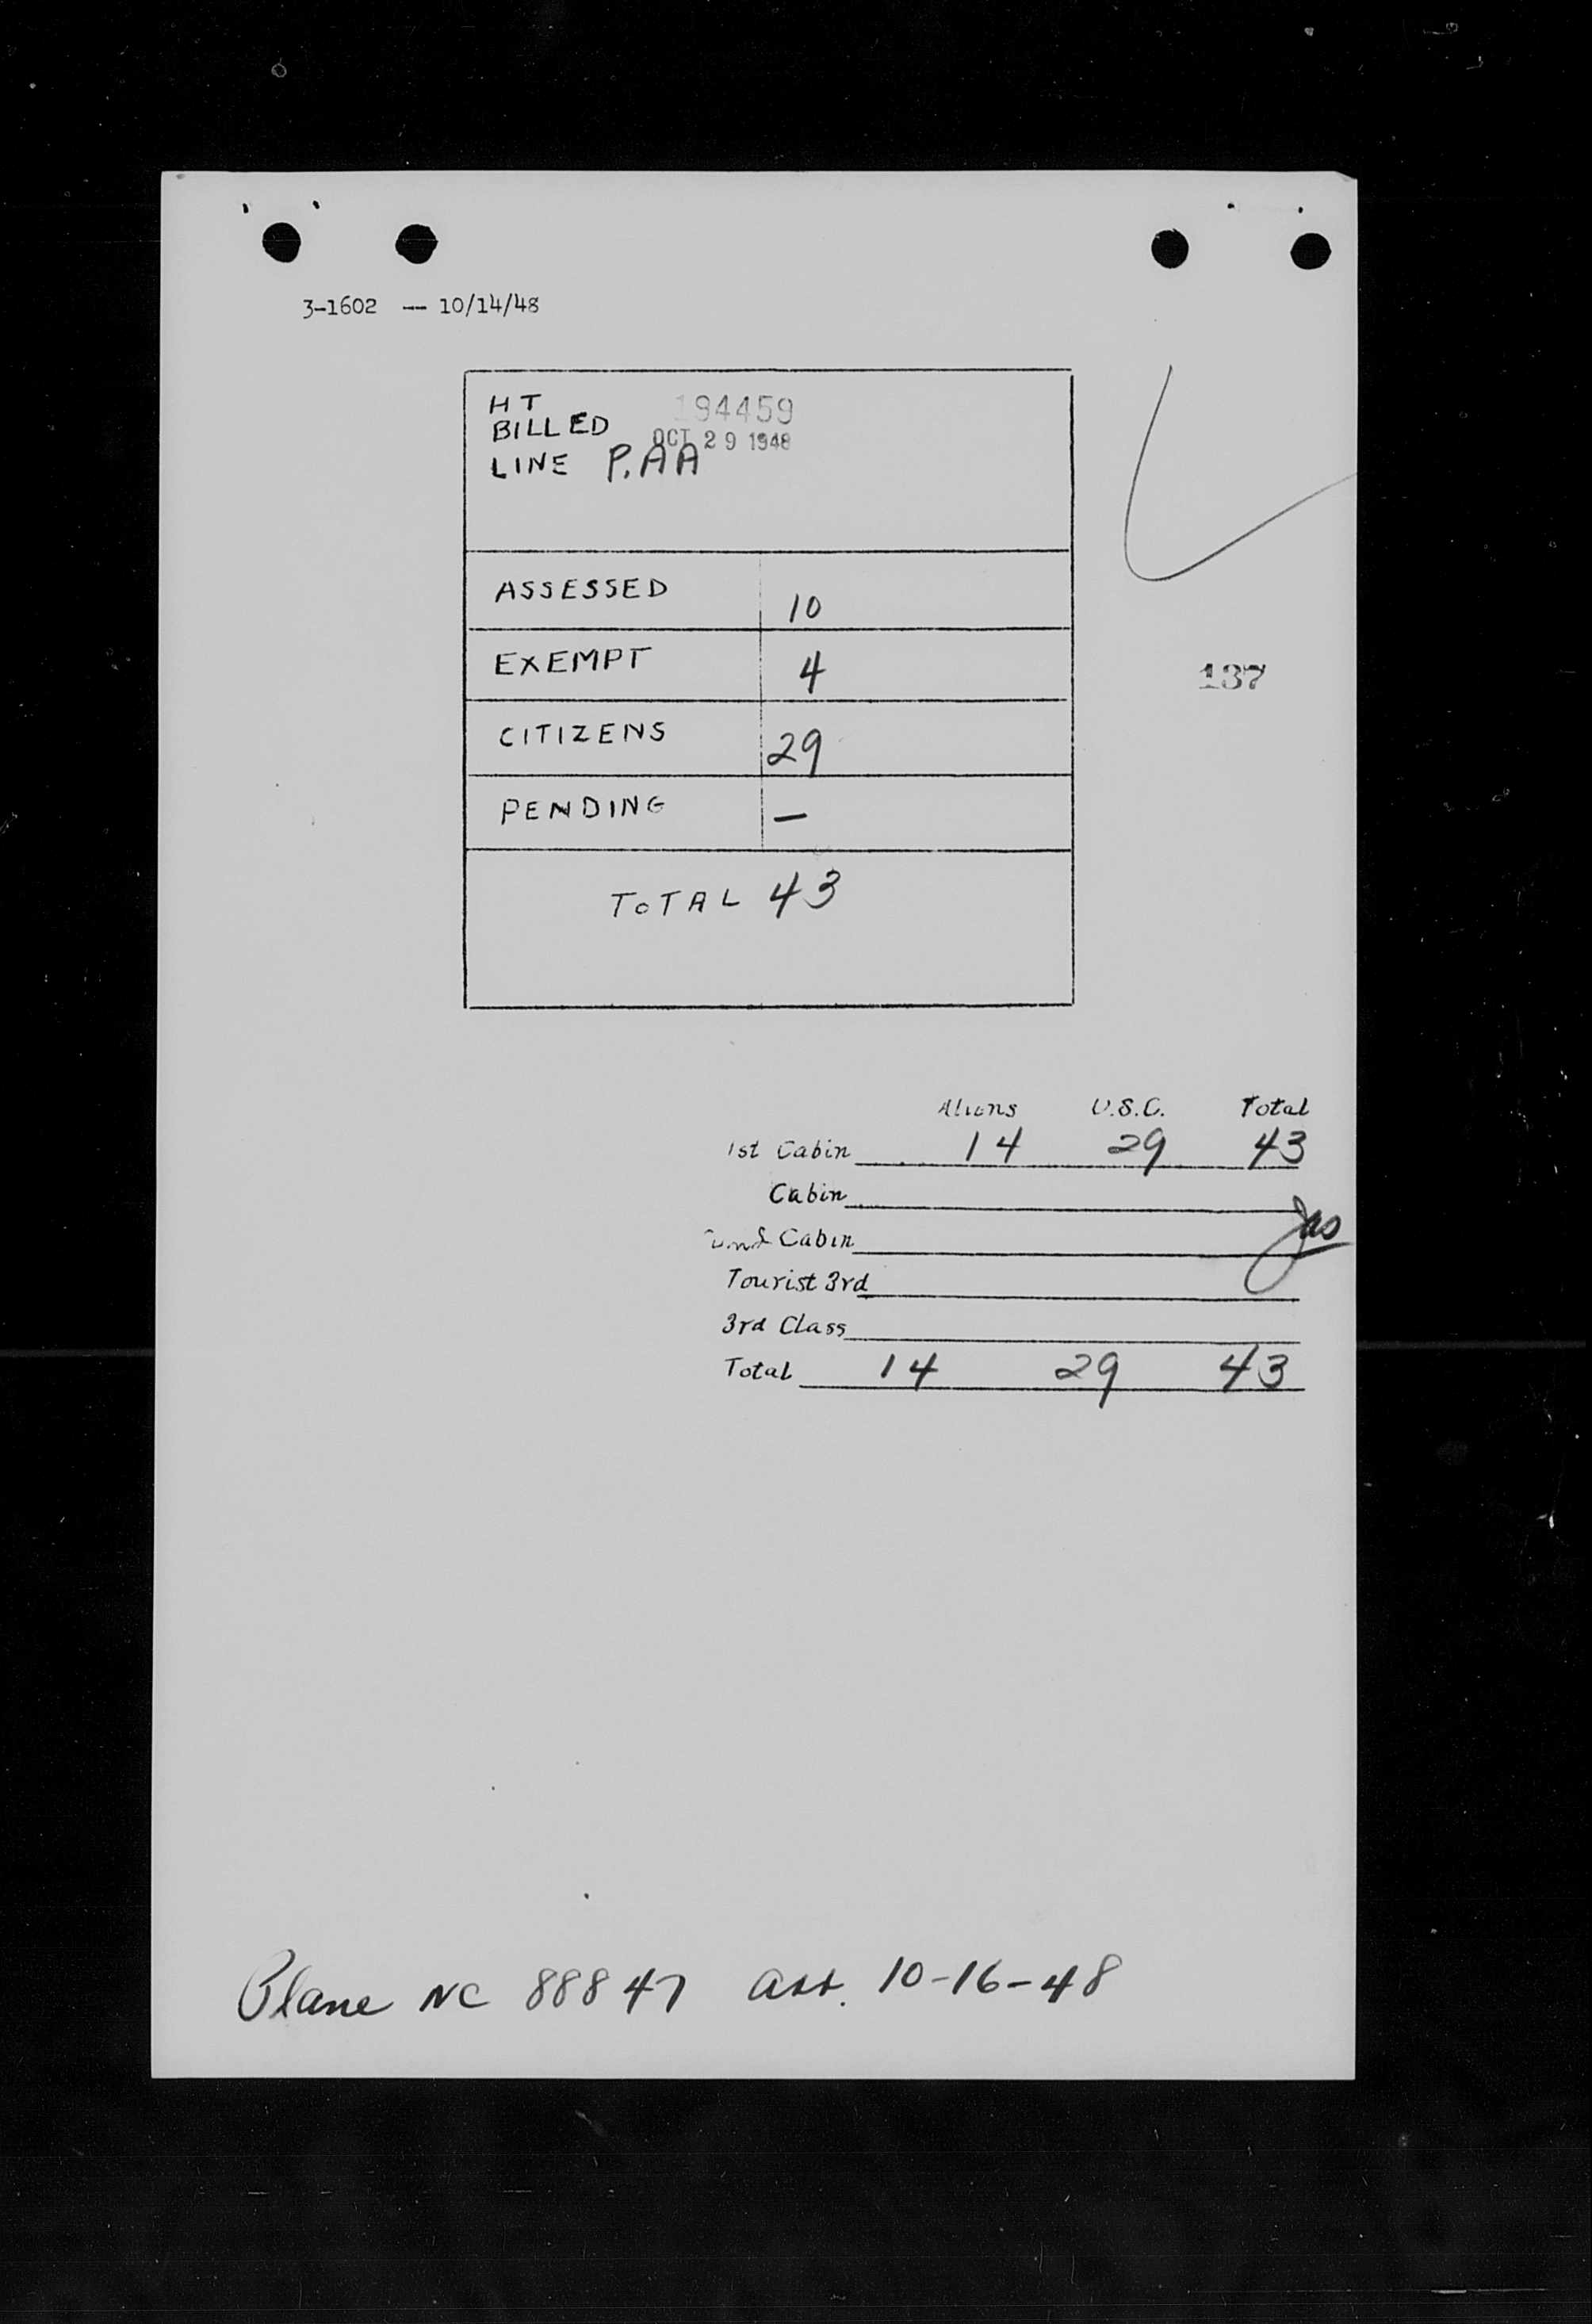 3-1602 -- 10/14/48
HT 194459
BILLED OCT 29 1948
LINE P.AA
ASSESSED 10
EXEMPT 4
CITIZENS 29
PENDING —
TOTAL 43
137
Aliens U.S.C. Total
1st Cabin 14 29 43
Cabin
Cabin
Tourist 3rd
3rd Class
Total 14 29 43
Plane NC 88847 arr. 10-16-48